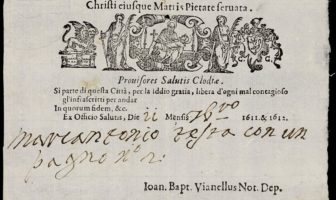 Christi eiusque Matris Pietate seruata.
Prouisores Salutis Clodiæ.
Si parte di questa Città, per la Iddio gratia, libera d'ogni mal contagioso
gl'infrascritti per andar
In quorum fidem, &c.
Ex Officio Salutis, Die ii Mensis 7bro 1611. & 1612.
marcantonio testa con un
pagno nº 2.
Ioan. Bapt. Vianellus Not. Dep.